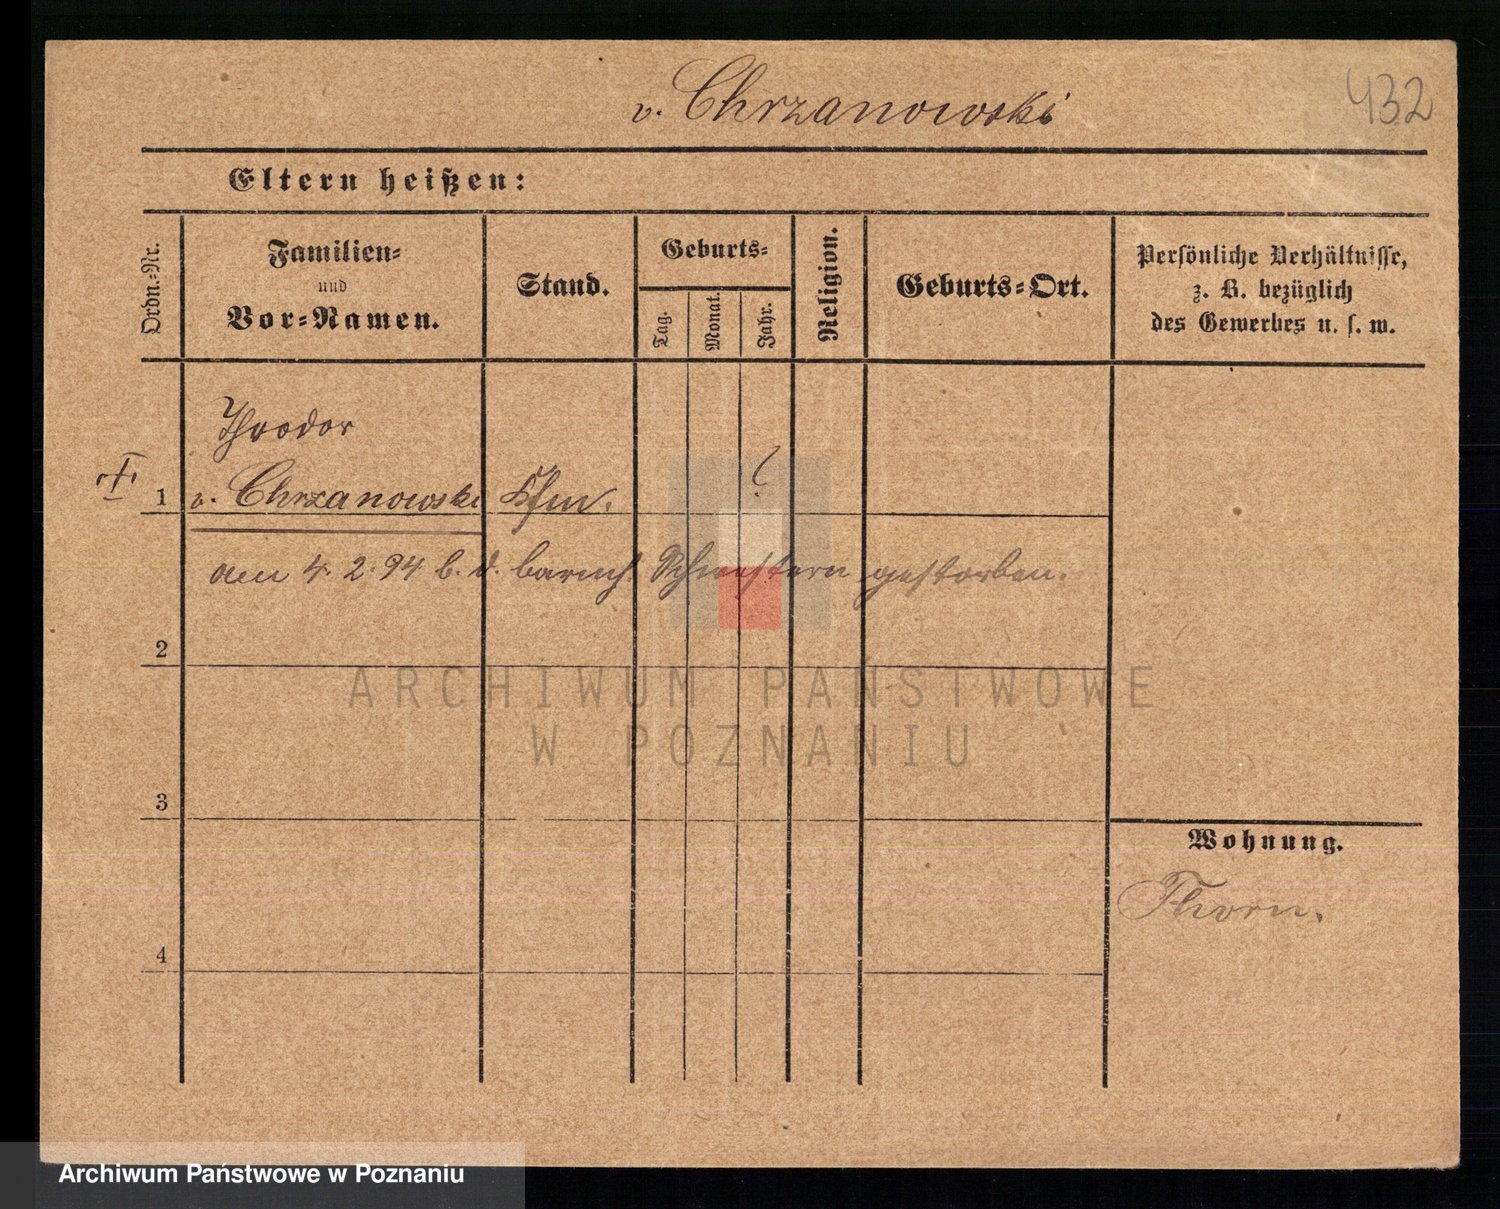 v. Chrzanowski
432
Eltern heißen:
Ordn.=Nr.
Familien=
und
Vor=Namen.
Stand.
Geburts=
Tag.
Monat.
Jahr.
Religion.
Geburts=Ort.
Persönliche Verhältnisse,
z. B. bezüglich
des Gewerbes u. s. w.
Theodor
1 v. Chrzanowski Kfm. ?
am 4. 2. 94 b. d. barmh. Schwestern gestorben.
2
ARCHIWUM PAŃSTWOWE
W POZNANIU
3
Wohnung.
Thorn.
4
Archiwum Państwowe w Poznaniu